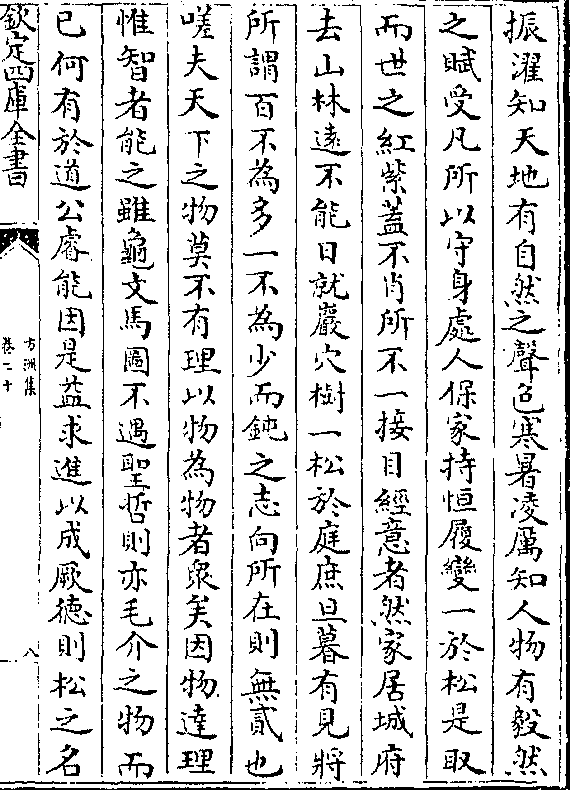 振濯知天地有自然之聲色寒暑凌厲知人物有毅然
之賦受凡所以守身處人保家持恒履變一於松是取
而世之紅紫蓋不肖所不一接目經意者然家居城府
去山林遠不能日就巖穴樹一松於庭庶旦暮有見將
所謂百不為多一不為少而鈍之志向所在則無貳也
嗟夫天下之物莫不有理以物為物者衆矣因物達理
惟智者能之雖龜文馬圖不遇聖哲則亦毛介之物而
已何有於道公睿能因是益求進以成厥德則松之名
欽定四庫全書
方洲集
卷二十
八